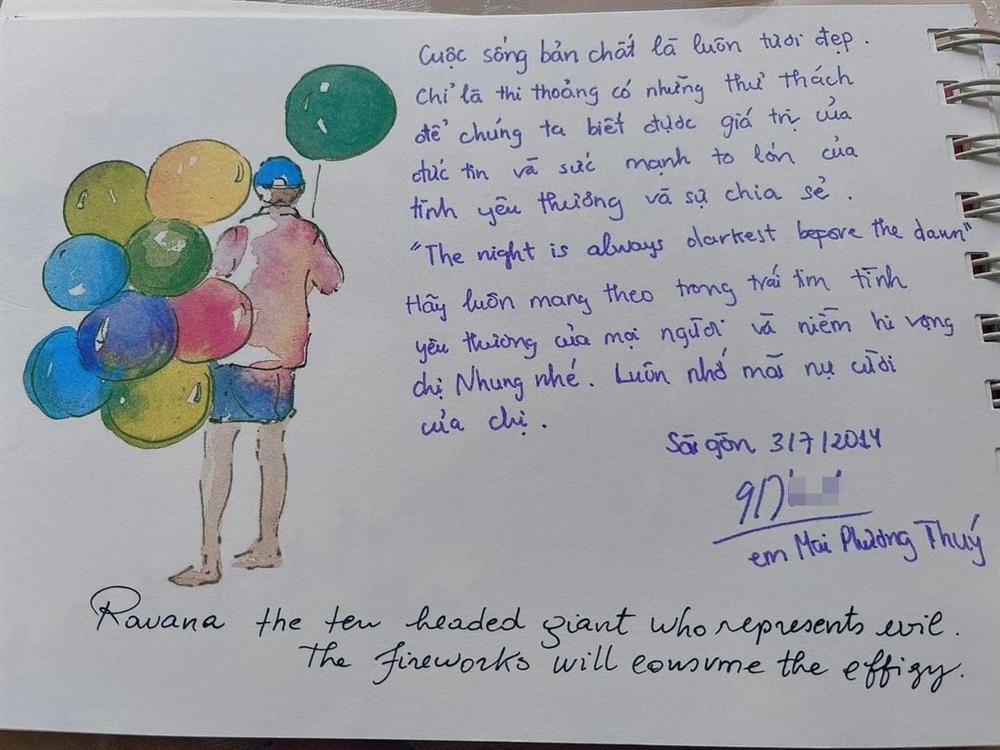 Cuộc sống bản chất là luôn tươi đẹp.
Chỉ là thi thoảng có những thử thách
để chúng ta biết được giá trị của
đức tin và sức mạnh to lớn của
tình yêu thương và sự chia sẻ.
"The night is always darkest before the dawn"
Hãy luôn mang theo trong trái tim tình
yêu thương của mọi người và niềm hi vọng
chị Nhung nhé. Luôn nhớ mãi nụ cười
của chị.
Sài gòn 3/7/2014
em Mai Phương Thuý
Ravana the ten headed giant who represents evil.
The fireworks will consume the effigy.